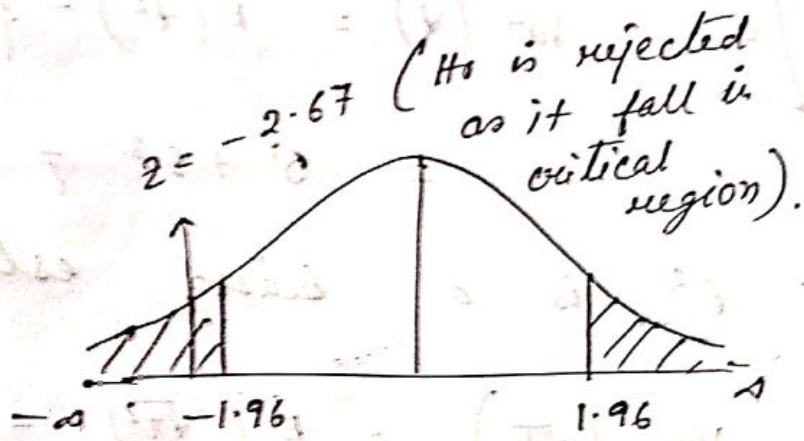 z = -2.67 (Ho is rejected
as it fall in
critical
region).
-∞ -1.96 1.96 ∞